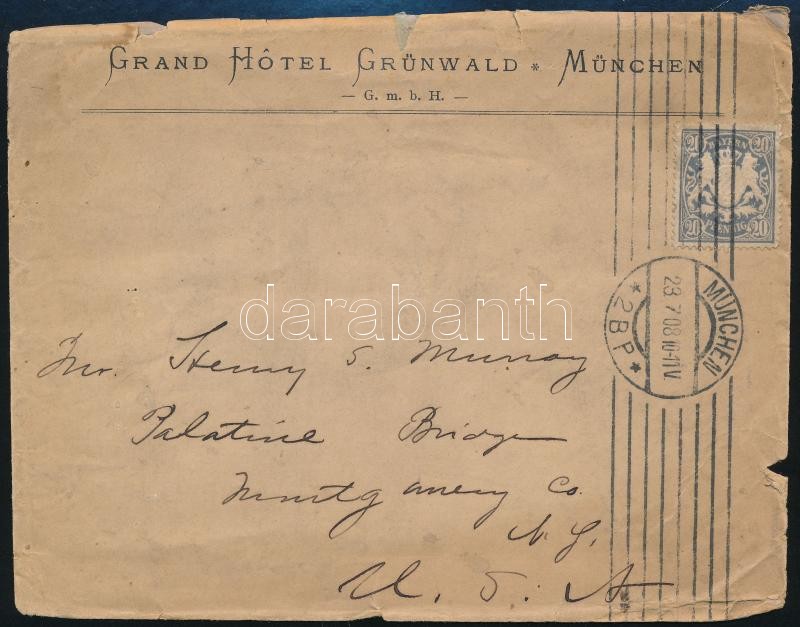 GRAND HÔTEL GRÜNWALD * MÜNCHEN
— G. m. b. H. —
20 BAYERN 20
20 PFENNIG 20
MÜNCHEN
23.7.08 10-11V.
* 2 B P *
darabanth
Mr. Henry S. Murray
Palatine Bridge
Montgomery Co.
N. Y.
U. S. A